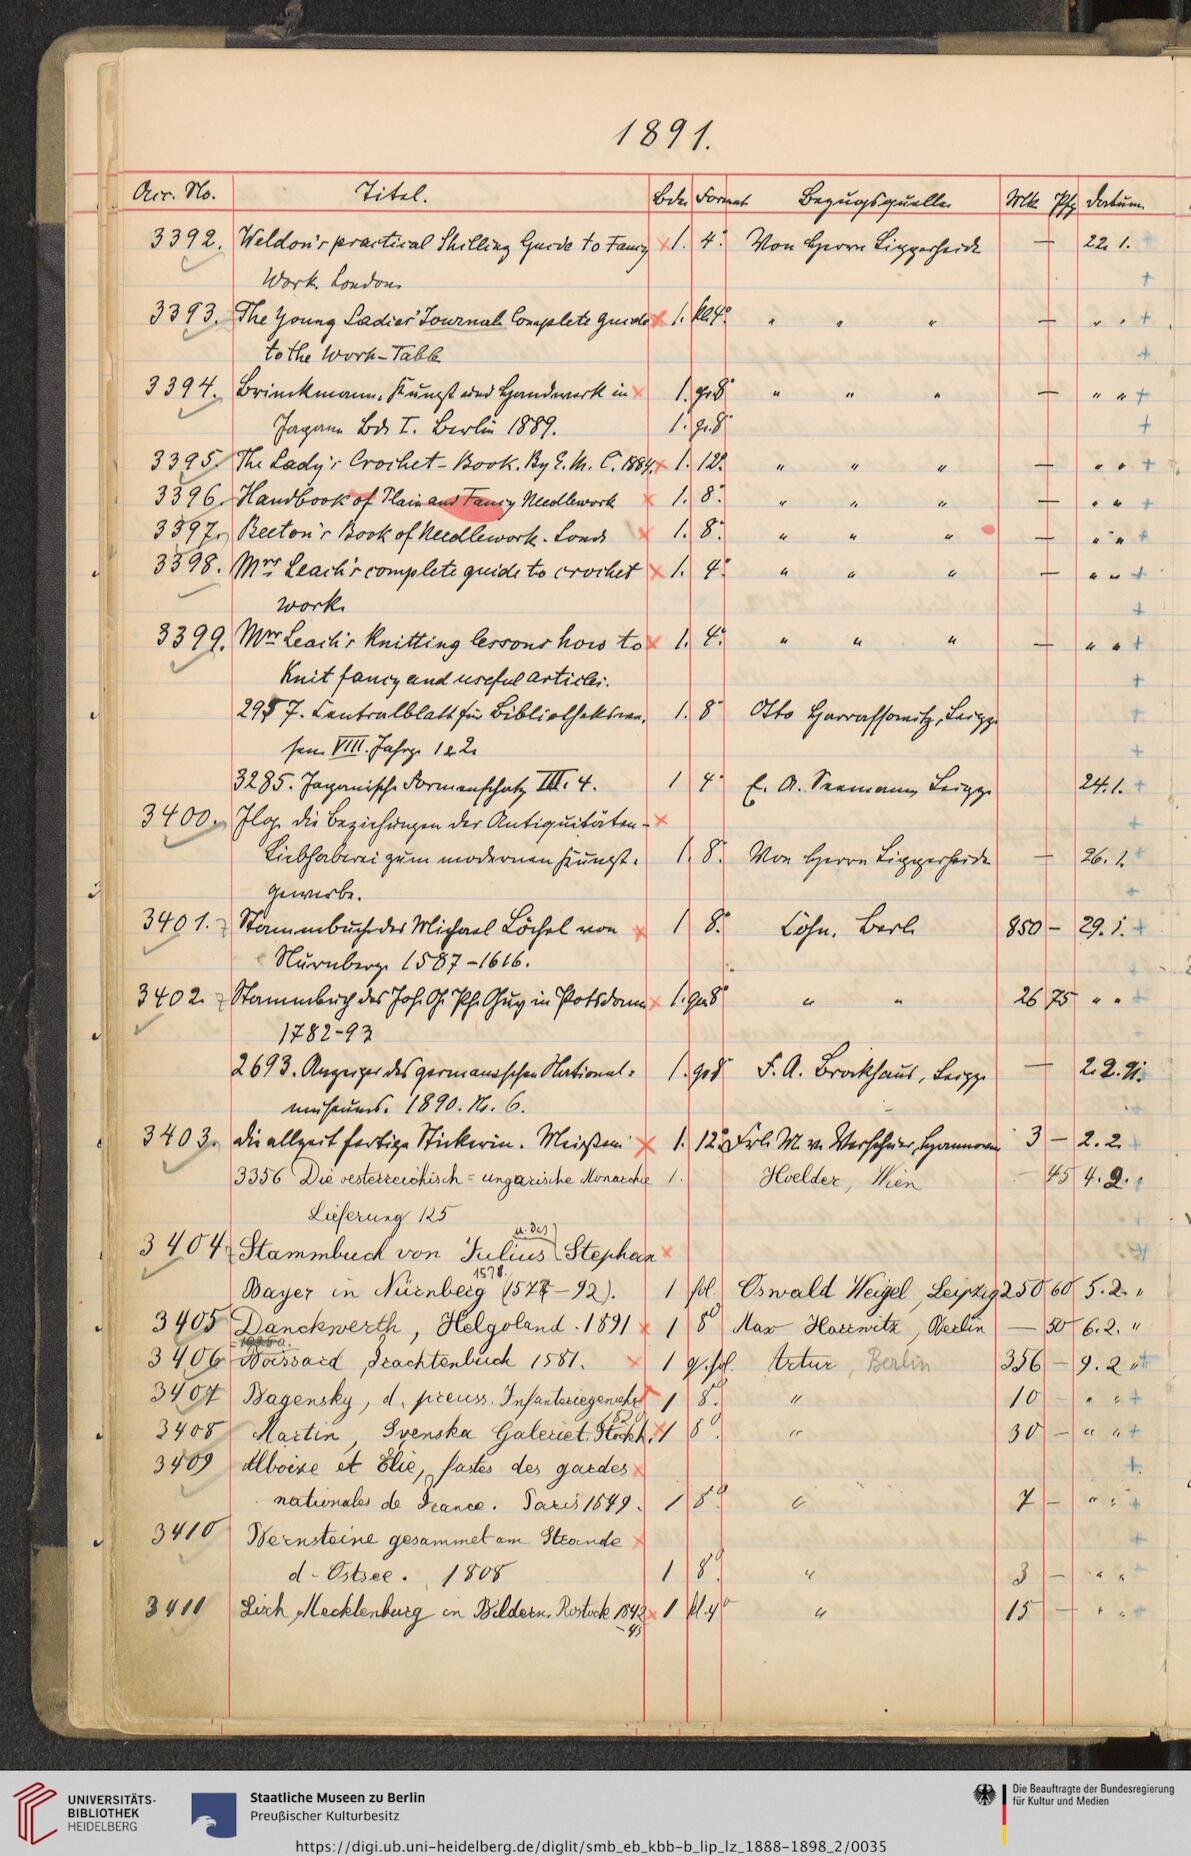 1891.
Acc. No. Titel. Bde. Format Bezugsquelle Mk Pfg Datum
3392. Weldon's practical Shilling Guide to Fancy 1. 4° Von Herrn Lipperheide — 22. 1.
Work. London.
3393. The Young Ladies' Journal Complete Guide 1. kl.4° " " " — " "
to the Work-Table
3394. Brinckmann, Kunst und Handwerk in 1. gr.8° " " " — " "
Japan Bd. I. Berlin 1889. 1. gr.8°
3395. The Lady's Crochet-Book. By E. M. C. 1884. 1. 12° " " " — " "
3396. Handbook of Plain and Fancy Needlework 1. 8° " " " — " "
3397. Beeton's Book of Needlework. Lond. 1. 8° " " " — " "
3398. Mrs Leach's complete guide to crochet 1. 4° " " " — " "
work.
3399. Mrs Leach's Knitting lessons how to 1. 4° " " " — " "
Knit fancy and useful articles.
2957. Centralblatt für Bibliothekswe- 1. 8° Otto Harrassowitz, Leipz.
sen VIII. Jahrg. 1 & 2.
3285. Japanischer Formenschatz III. 4. 1 4° E. A. Seemann, Leipz. 24. 1.
3400. Ilg. die Beziehungen der Antiquitäten-
Liebhaberei zum modernen Kunst- 1. 8° Von Herrn Lipperheide — 26. 1.
gewerbe.
3401. Stammbuch des Michael Löchel von 1 8° Cohn. Berl. 850 — 29. 1.
Nürnberg. 1587-1616.
3402. Stammbuch des Joh. in Potsdam 1. gr.8° " " 26 75 " "
1782-93
2693. Anzeiger des germanischen National- 1. gr.8° F. A. Brockhaus, Leipz. — 2. 2. 91.
museums. 1890. No. 6.
3403. die allzeit fertige Stickerin. Meißen. 1. 12° Frl. M. v. Hannover 3 — 2. 2.
3356 Die oesterreichisch=ungarische Monarchie 1. Hoelder, Wien — 45 4. 2.
Lieferung 125
u. des
3404. Stammbuch von Julius Stephan
1578
Bayer in Nürnberg (1577-92). 1 fol. Oswald Weigel, Leipzig 250 60 5. 2. "
3405 Danckwerth, Helgoland. 1891 1 8° Max Harrwitz, Berlin — 50 6. 2. "
3406 Boissard, Trachtenbuch 1581. 1 q. fol. Artur, Berlin 356 — 9. 2 "
3407 Bagensky, d. preuss. Infanteriegewehr 1 8° " 10 — " "
3408 Martin, Svenska Galeriet. Stockh. 1 8° " 30 — " "
3409 Alboize et Élie, fastes des gardes
nationales de France. Paris 1849. 1 8° " 7 — " "
3410 Bernsteine gesammelt am Strande
d. Ostsee. 1808 1 8° " 3 — " "
3411 Lisch, Mecklenburg in Bildern. Rostock 1842 1 kl.4° " 15 — " "
-45
UNIVERSITÄTS-
BIBLIOTHEK
HEIDELBERG
Staatliche Museen zu Berlin
Preußischer Kulturbesitz
Die Beauftragte der Bundesregierung
für Kultur und Medien
https://digi.ub.uni-heidelberg.de/diglit/smb_eb_kbb-b_lip_lz_1888-1898_2/0035